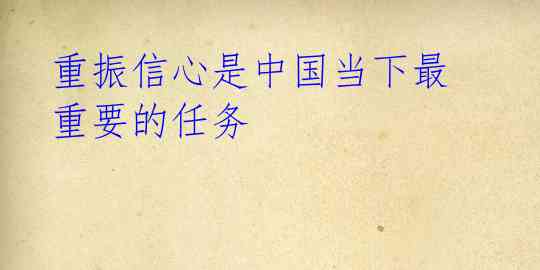 重振信心是中国当下最
重要的任务